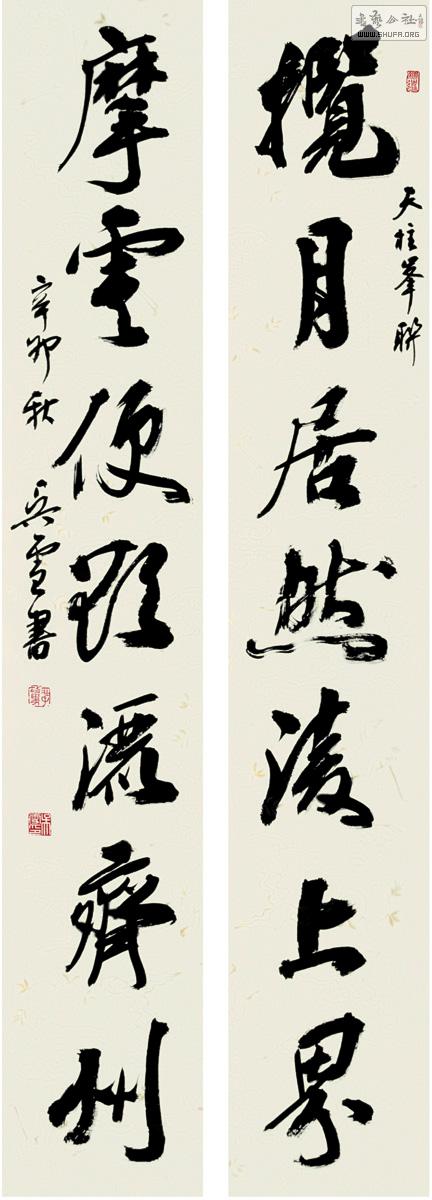 書藝公社
WWW.SHUFA.ORG
天柱峯聯
攬月居然淩上界
摩雲便欲灑齊州
辛卯秋
吳雪書